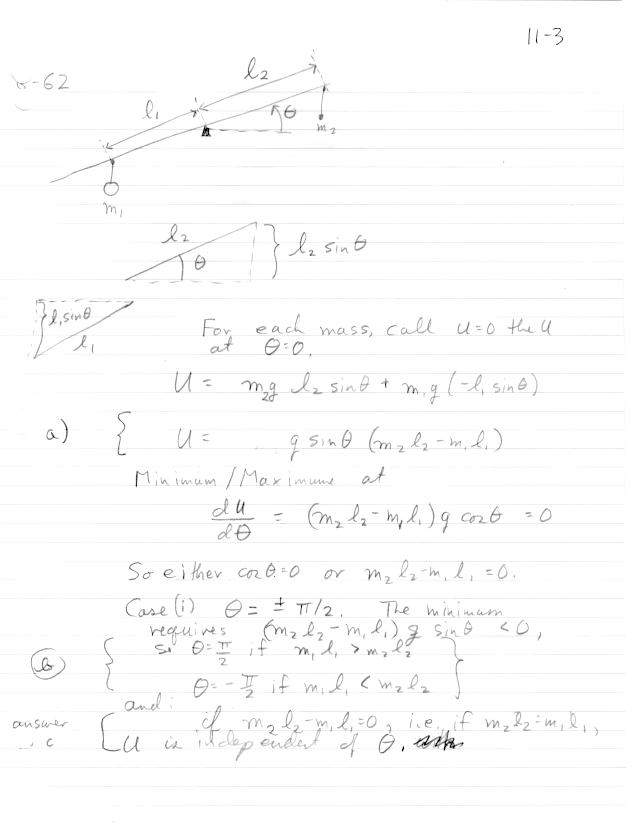 11-3
-62
l₂
l₁
θ
m₂
m₁
l₂
θ
l₂ sin θ
l₁ sinθ
l₁
For each mass, call U=0 the U
at θ=0.
U = m₂g l₂ sinθ + m₁g (-l₁ sinθ)
a) { U = g sinθ (m₂l₂-m₁l₁)
Minimum/Maximum at
dU/dθ = (m₂l₂-m₁l₁) g cosθ = 0
So either cosθ=0 or m₂l₂-m₁l₁=0.
Case (i) θ = ± π/2. The minimum
requires (m₂l₂-m₁l₁) g sinθ <0,
b { so θ=π/2 if m₁l₁ > m₂l₂ }
θ=-π/2 if m₁l₁ < m₂l₂
and:
answer c [ if m₂l₂-m₁l₁=0, i.e., if m₂l₂=m₁l₁,
U is independent of θ.